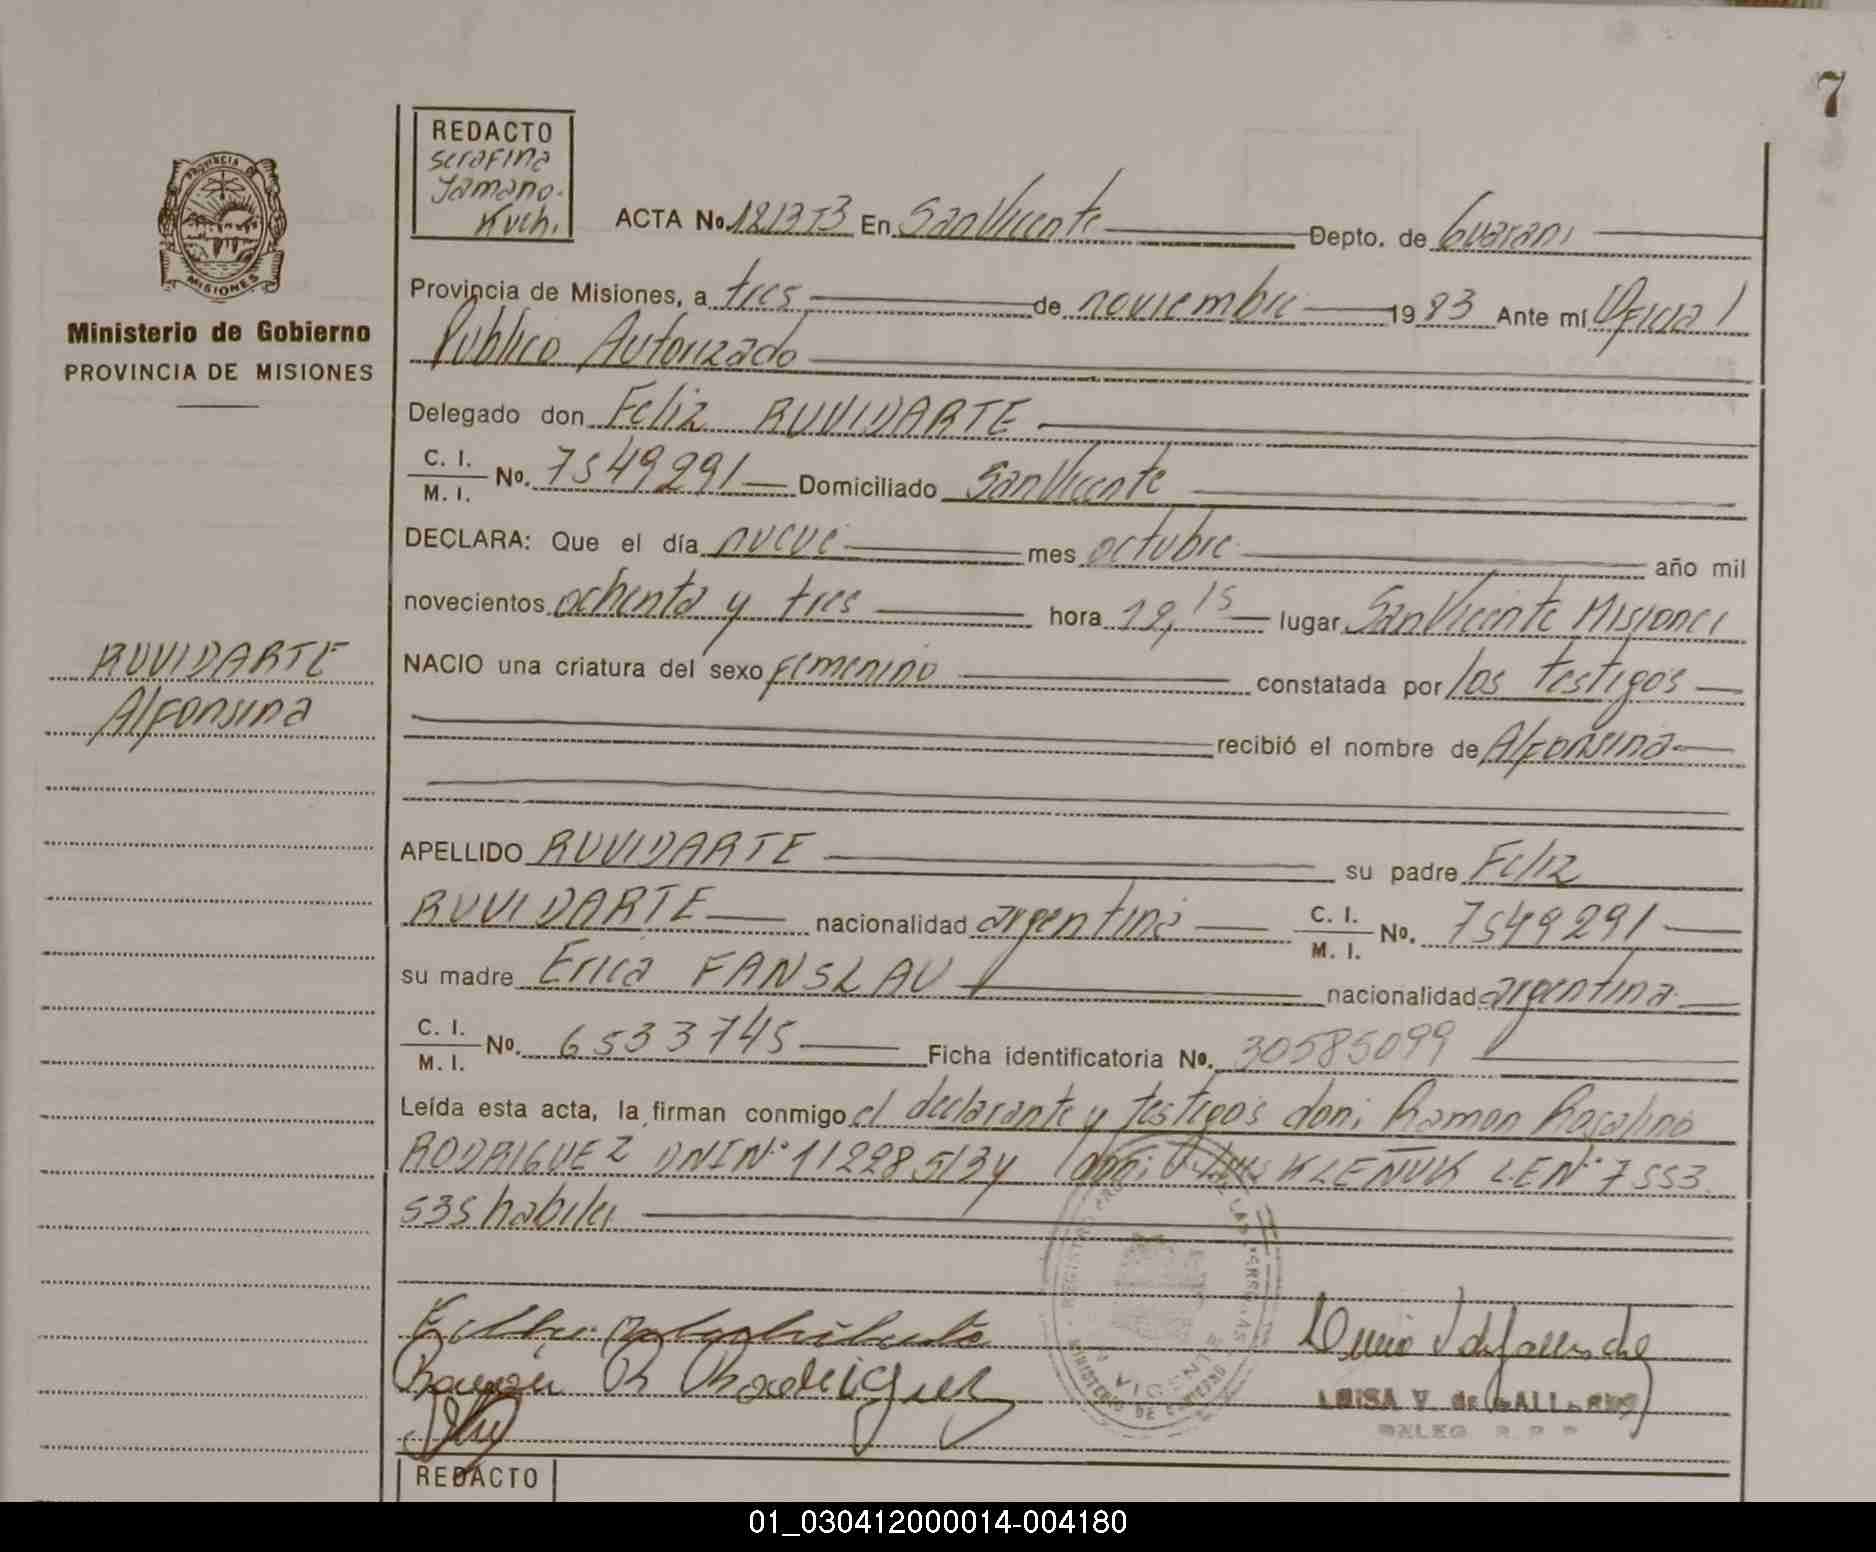 7
REDACTO
Serafina
Yamano.
Kuch.
PROVINCIA DE
MISIONES
Ministerio de Gobierno
PROVINCIA DE MISIONES
ACTA No. En San Vicente Depto. de Guarani
Provincia de Misiones, a tres de noviembre 1983 Ante mí Oficial
Publico Autorizado
Delegado don Feliz RUVIDARTE
C. I.
M. I. No. 7549291 Domiciliado San Vicente
DECLARA: Que el día nueve mes octubre año mil
novecientos ochenta y tres hora 19,15 lugar San Vicente Misiones
RUVIDARTE
Alfonsina
NACIO una criatura del sexo femenino constatada por los testigos
recibió el nombre de Alfonsina
APELLIDO RUVIDARTE su padre Feliz
RUVIDARTE nacionalidad argentina C. I.
M. I. No. 7549291
su madre Erica FANSLAU nacionalidad argentina
C. I.
M. I. No. 6533745 Ficha identificatoria No. 30585099
Leída esta acta, la firman conmigo el declarante y testigos don: Ramon Rosalino
RODRIGUEZ DNI Nº 11228513 y don: Luis KLEÑUK L.E Nº 7553
535 habiles
Ramón R Rodriguez
LUISA V. de GALLARDO
DELEG. R. P. P.
REDACTO
01_030412000014-004180